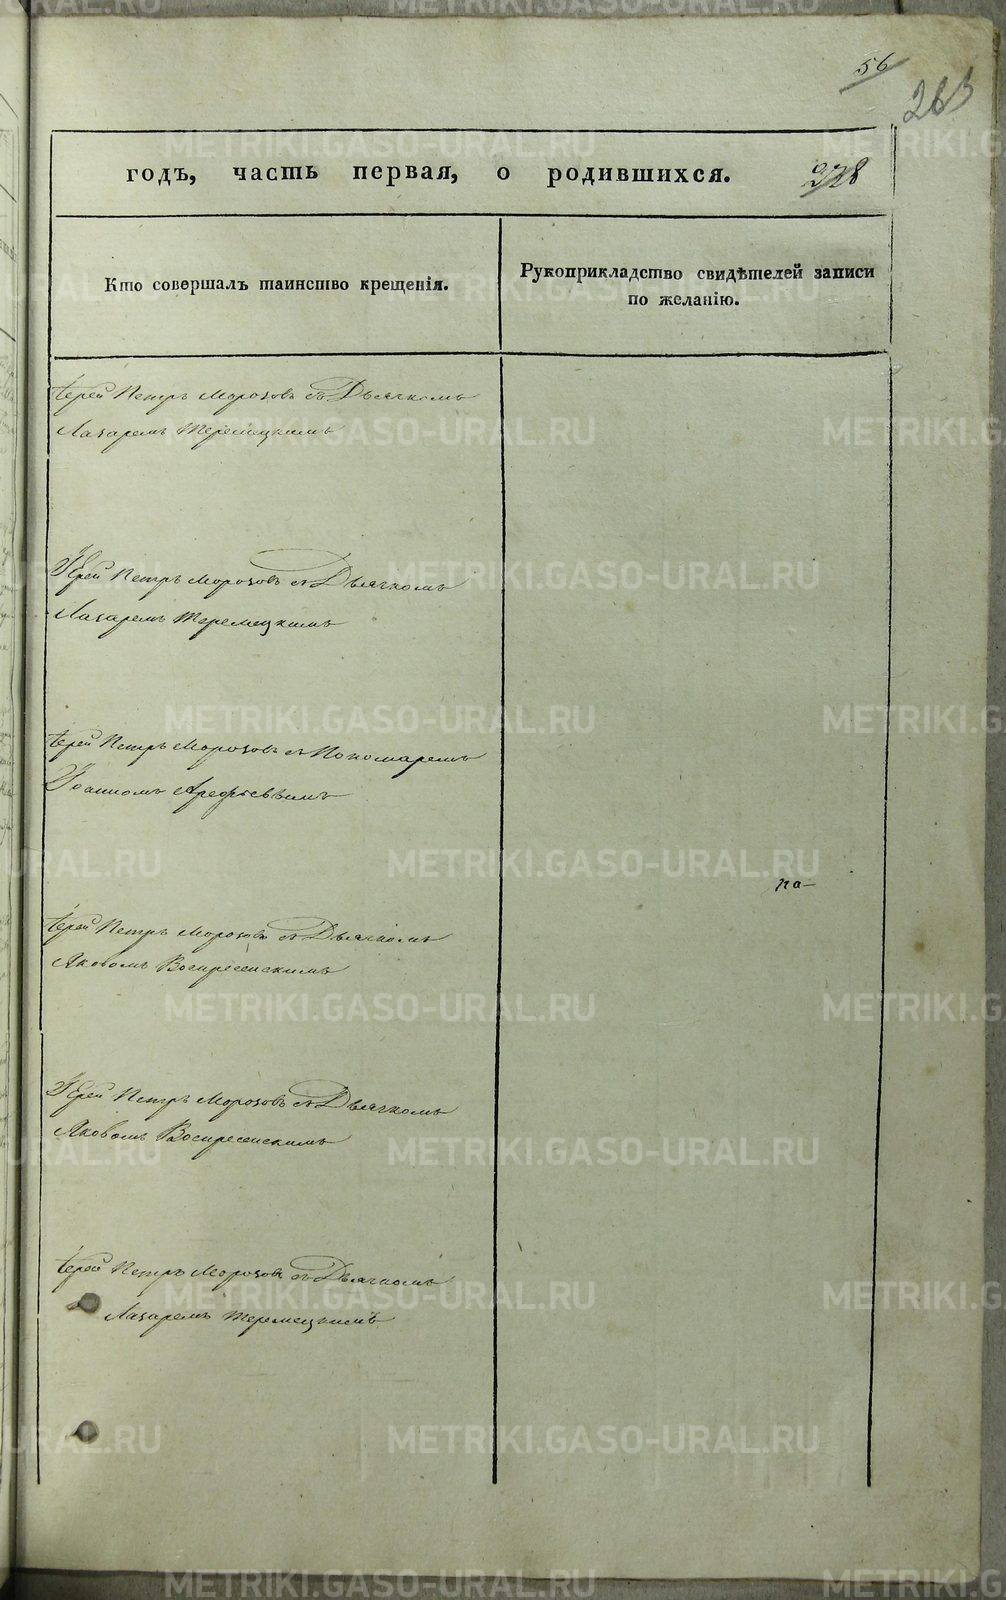 56
263
годъ, часть первая, о родившихся. 228
Кто совершалъ таинство крещенія.
Рукоприкладство свидѣтелей записи
по желанію.
Іерей Петръ Морозовъ съ Дьячкомъ
Лазаремъ Теремецкимъ
Іерей Петръ Морозовъ съ Дьячкомъ
Лазаремъ Теремецкимъ
Іерей Петръ Морозовъ съ Пономаремъ
Іоанномъ Арефьевымъ
па-
Іерей Петръ Морозовъ съ Дьячкомъ
Яковомъ Воскресенскимъ
Іерей Петръ Морозовъ съ Дьячкомъ
Яковомъ Воскресенскимъ
Іерей Петръ Морозовъ съ Дьячкомъ
Лазаремъ Теремецкимъ
METRIKI.GASO-URAL.RU